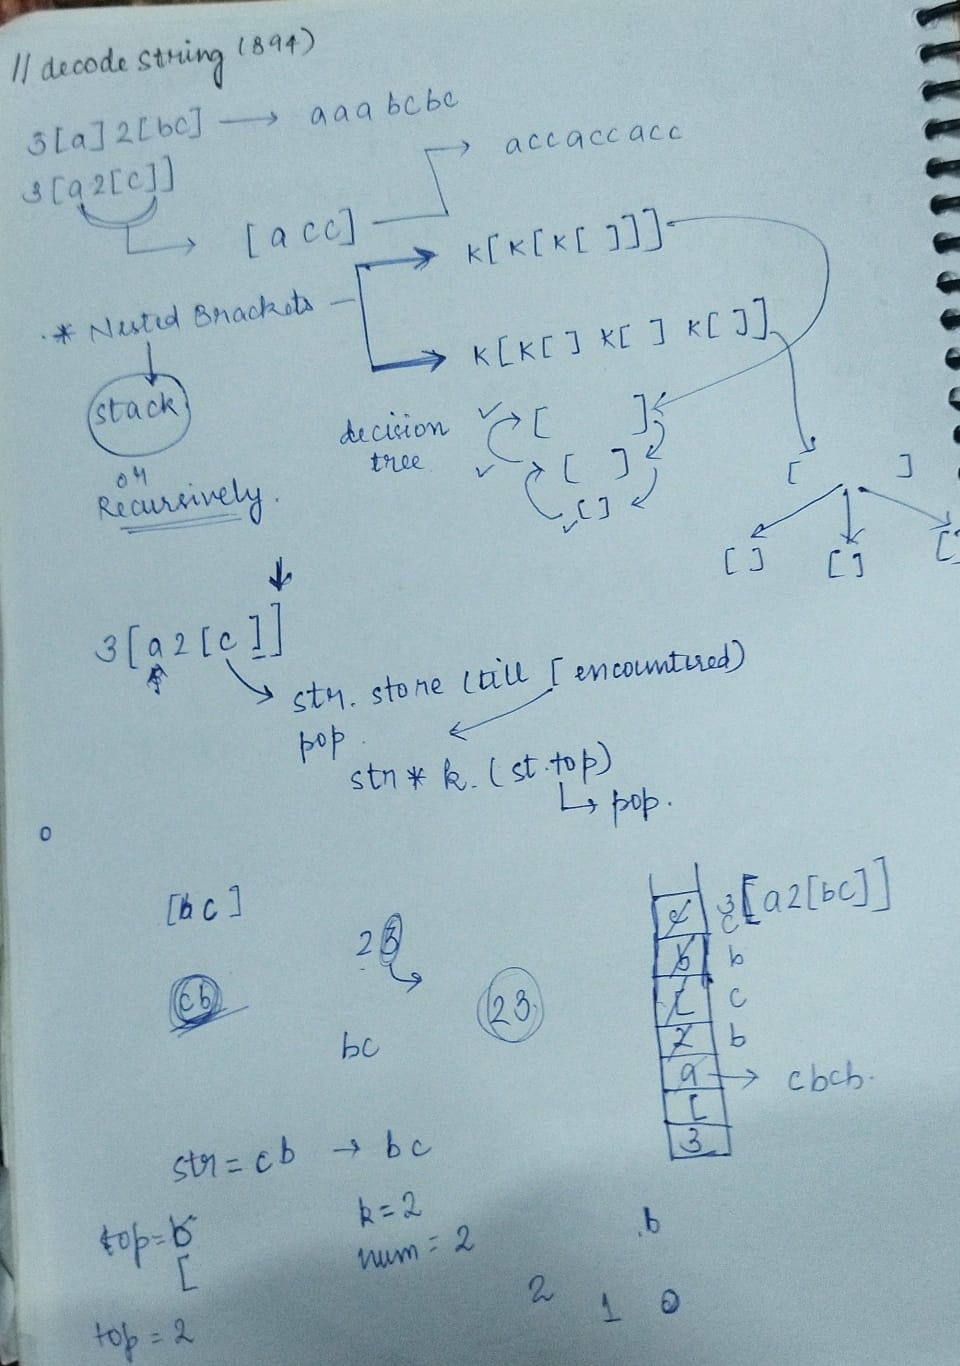 // decode string (394)
3[a]2[bc] → aaabcbc
3[a2[c]]
→ accaccacc
→ [acc]
* Nested Brackets
k[k[k[ ]]]
k[k[ ] k[ ] k[ ]]
stack
or
Recursively.
decision
tree
[ ]
[ ]
[ ]
[ ]
[ ] [ ] [
3[a2[c]]
str. store (till [ encountered)
pop.
str * k. (st.top)
pop.
[bc]
23
cb
23.
bc
3[a2[bc]]
c c
b b
[ c
2 b
a → cbcb.
[
3
str = cb → bc
top = b
[
top = 2
k = 2
num = 2
.b
2 1 0